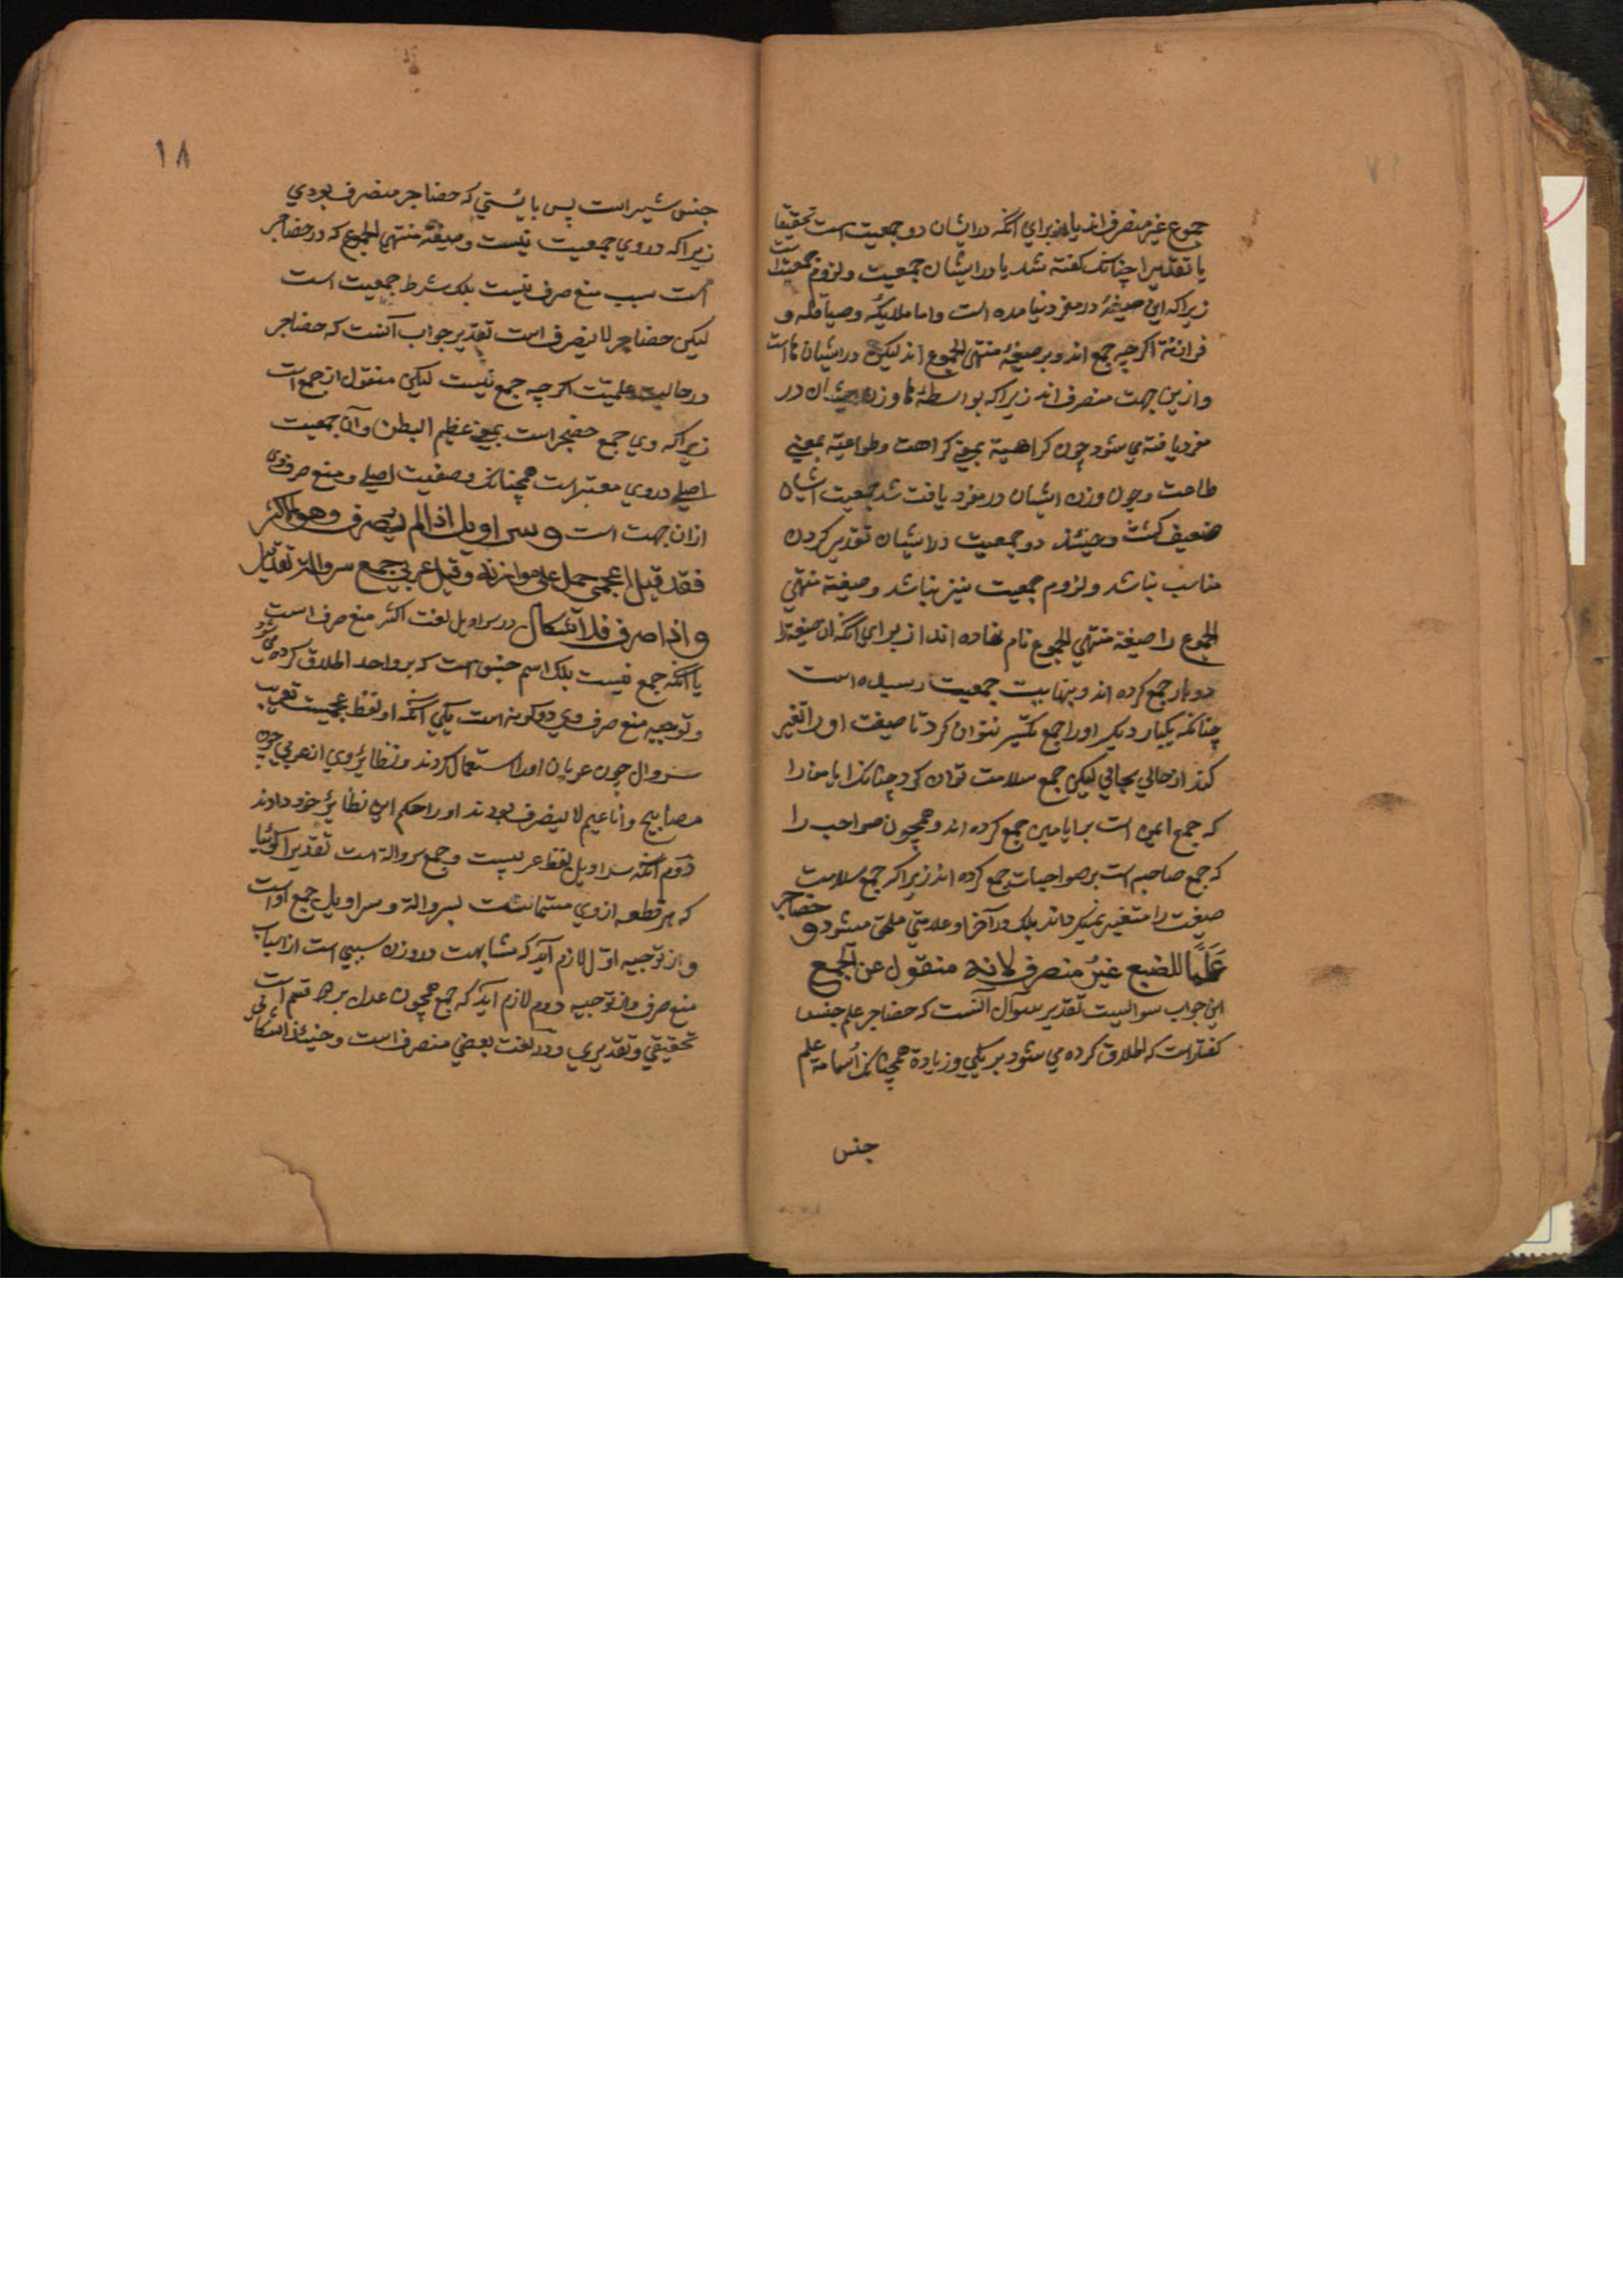 جموع غیر منصرف اند یا از برای انکه در ایشان دو جمعیت است تحقیقا
یا تقدیرا چنانک کفته شد یا در ایشان جمعیت و لزوم جمعیت است
زیرا که این صیغهٔ در مفرد نیامده است و اما ملایکه و صیاقله و
فرازنة اکرچه جمع اند و بر صیغهٔ منتهی الجموع اند لیکن در ایشان تا است
و ازین جهت منصرف اند زیرا که بواسطهٔ تا وزن ایشان در
مفرد یافته می شود چون کراهیة بمعنی کراهت و طواعیة بمعنی
طاعت و چون وزن ایشان در مفرد یافت شد جمعیت ایشان
ضعیف کشت و حینئذ دو جمعیت در ایشان تقدیر کردن
مناسب نباشد و لزوم جمعیت نیز نباشد و صیغهٔ منتهی
الجموع را صیغهٔ منتهی الجموع نام نهاده اند از برای انکه ان صیغه را
دو بار جمع کرده اند و بنهایت جمعیت رسیده است
چنانکه یکبار دیکر او را جمع تکسیر نتوان کرد تا صیغت او را تغیر
کند از حالی بحالی لیکن جمع سلامت توان کرد چنانک ایامن را
که جمع ایمن است بر ایامنین جمع کرده اند و همچون صواحب را
که جمع صاحبه است بر صواحبات جمع کرده اند زیرا که جمع سلامت
صیغت را متغیر نمیکرداند بلک در آخر او علامتی ملحق میشود و حضاجر
عَلَمًا للضبع غیرُ منصرف لانه منقول عن الجمع
این جواب سوالیست تقدیر سوال آنست که حضاجر علم جنس
کفتار است که اطلاق کرده می شود بر یکی و زیادة همچنانک اُسامه علم
جنس
۱۸
جنس شیر است پس بایستی که حضاجر منصرف بودی
زیرا که در وی جمعیت نیست و صیغهٔ منتهی الجموع که در حضاجر
است سبب منع صرف نیست بلک شرط جمعیت است
لیکن حضاجر لا ینصرف است تقدیر جواب آنست که حضاجر
در حالیت علمیت اکرچه جمع نیست لیکن منقول از جمع است
زیرا که وی جمع حضجر است بمعنی عظیم البطن و آن جمعیت
اصلی در وی معتبر است همچنانک وصفیت اصلی و منع صرف وی
ازان جهت است و سراویل اذا لم یصرف و هو الاکثر
فقد قیل اعجمی حمل علی موازنه و قیل عربی جمع سروالة تقدیرا
و اذا صرف فلا اشکال در سراویل لغت اکثر منع صرف است
با انکه جمع نیست بلک اسم جنس است که بر واحد اطلاق کرده می شود
و توجیه منع صرف وی دو کونه است یکی انکه او لفظ عجمیست تعریب
سروال چون عربان او را استعمال کردند و نظایر وی از عربی چون
مصابیح و اناعیم لا ینصرف بودند او را حکم این نظایر خود دادند
دوم انکه سراویل لفظ عربیست و جمع سروالة است تقدیرا کوئیا
که هر قطعه از وی مسمانست بسروالة و سراویل جمع او است
و از توجیه اوّل لازم آید که مشابهت در وزن سببی است از اسباب
منع صرف و از توجیه دوم لازم اید که جمع همچون عدل بر دو قسم است
تحقیقی و تقدیری و در لغت بعضی منصرف است و حینئذ اشکالی